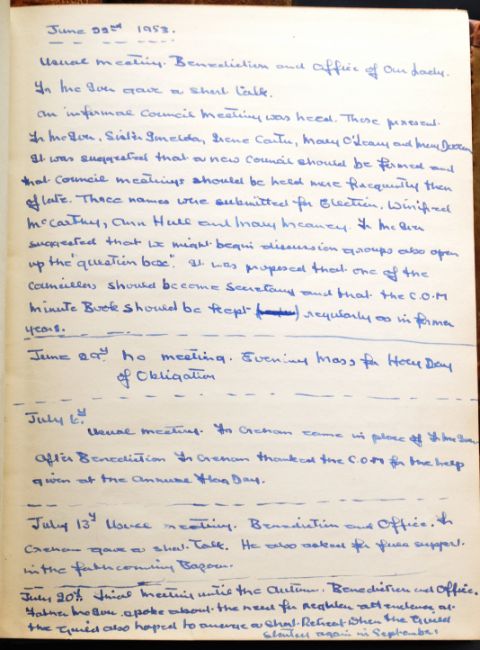 June 22nd 1953.
Usual meeting. Benediction and Office of Our Lady.
Fr McIvor gave a short talk.
An informal Council Meeting was held. Those present
Fr McIvor, Sister Imelda, Irene Carty, Mary O'Leary and Mary
It was suggested that a new Council should be formed and
that Council meetings should be held more frequently than
of late. Three names were submitted for Election, Winifred
McCarthy, Ann Hull and Mary Meaney. Fr McIvor
suggested that we might begin discussion groups also open
up the "question box". It was proposed that one of the
Councillors should become Secretary and that the C.O.M
Minute Book should be kept regularly as in former
years.
June 29th No meeting. Evening Mass for Holy Day
of Obligation
July 6th
Usual meeting. Fr Crehan came in place of Fr McIvor
After Benediction Fr Crehan thanked the C.O.M for the help
given at the Annual Flag Day.
July 13th Usual meeting. Benediction and Office. Fr
Crehan gave a short talk. He also asked for full support
in the forthcoming Bazaar.
July 20th Final Meeting until the Autumn. Benediction and Office.
Father McIvor spoke about the need for regular attendance at
the Guild also hoped to arrange a short Retreat when the Guild
started again in September